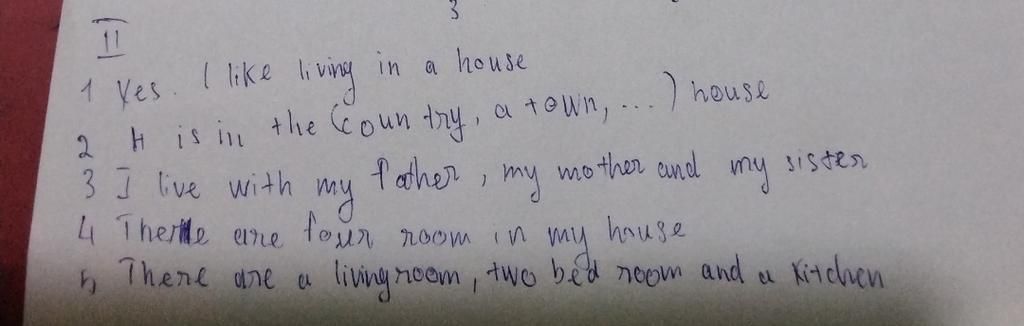 3
II
1 Yes. I like living in a house
2 It is in the (country, a town, ...) house
3 I live with my father, my mother and my sister
4 There are four room in my house
5 There are a livingroom, two bed room and a kitchen